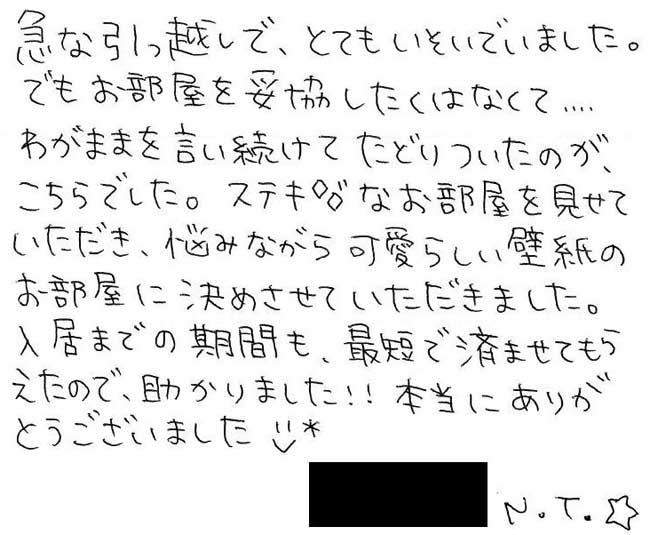 急な引っ越しで、とてもいそいでいました。
でもお部屋を妥協したくはなくて....
わがままを言い続けてたどりついたのが、
こちらでした。ステキ◇◇なお部屋を見せて
いただき、悩みながら可愛らしい壁紙の
お部屋に決めさせていただきました。
入居までの期間も、最短で済ませてもら
えたので、助かりました!!本当にありが
とうございました
N.T.☆